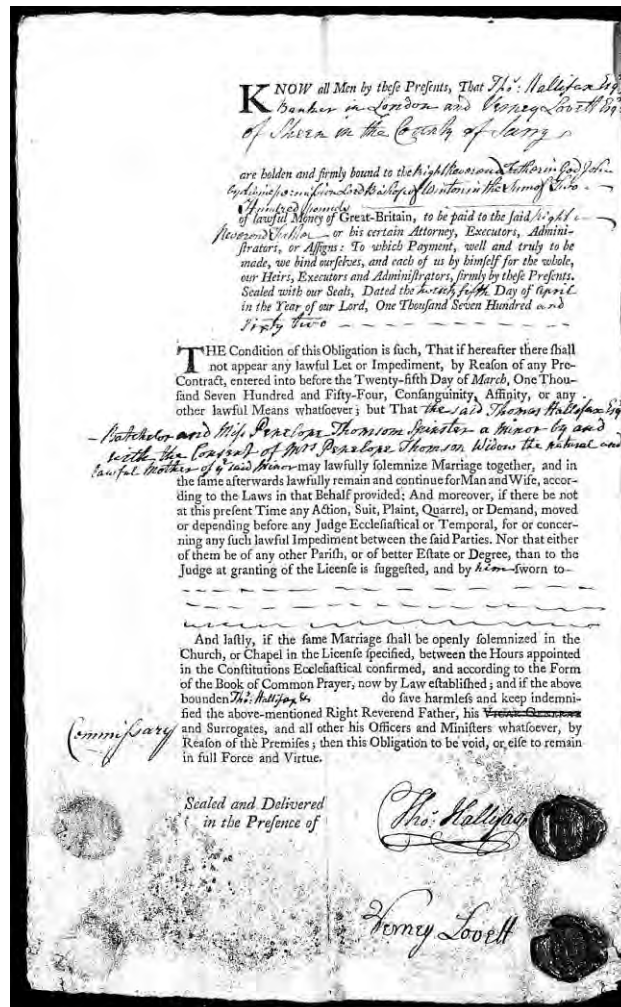 KNOW all Men by theſe Preſents, That Thoˢ. Hallifax Eſqʳ
Banker in London and Verney Lovett Eſqʳ
of Sheen in the County of Surry
are holden and firmly bound to the Right Reverend Father in God John
by divine permiſsion Lord Biſhop of Winton in the Sum of Two
Hundred pounds
of lawful Money of Great-Britain, to be paid to the ſaid right
Reverend Father or his certain Attorney, Executors, Admini-
ſtrators, or Aſſigns: To which Payment, well and truly to be
made, we bind ourſelves, and each of us by himſelf for the whole,
our Heirs, Executors and Adminiſtrators, firmly by theſe Preſents.
Sealed with our Seals, Dated the twenty fifth Day of April
in the Year of our Lord, One Thouſand Seven Hundred and
Sixty two
THE Condition of this Obligation is ſuch, That if hereafter there ſhall
not appear any lawful Let or Impediment, by Reaſon of any Pre-
Contract, entered into before the Twenty-fifth Day of March, One Thou-
ſand Seven Hundred and Fifty-Four, Conſanguinity, Affinity, or any
other lawful Means whatſoever; but That the said Thomas Hallifax Eſqʳ
Batchelor and Miſs Penelope Thomson Spinster a minor by and
with the Consent of Mrs Penelope Thomson Widow the natural and
lawful Mother of yᵉ said Minor may lawfully ſolemnize Marriage together, and in
the ſame afterwards lawfully remain and continue for Man and Wife, accor-
ding to the Laws in that Behalf provided: And moreover, if there be not
at this preſent Time any Action, Suit, Plaint, Quarrel, or Demand, moved
or depending before any Judge Eccleſiaſtical or Temporal, for or concer-
ning any ſuch lawful Impediment between the ſaid Parties. Nor that either
of them be of any other Pariſh, or of better Eſtate or Degree, than to the
Judge at granting of the Licenſe is ſuggeſted, and by him ſworn to
And laſtly, if the ſame Marriage ſhall be openly ſolemnized in the
Church, or Chapel in the Licenſe ſpecified, between the Hours appointed
in the Conſtitutions Eccleſiaſtical confirmed, and according to the Form
of the Book of Common Prayer, now by Law eſtabliſhed; and if the above
bounden Thoˢ. Hallifax do ſave harmleſs and keep indemni-
fied the above-mentioned Right Reverend Father, his Vicar General
Commiſsary
and Surrogates, and all other his Officers and Miniſters whatſoever, by
Reaſon of the Premiſes; then this Obligation to be void, or elſe to remain
in full Force and Virtue.
Sealed and Delivered
in the Preſence of
Thoˢ. Hallifax
Verney Lovett